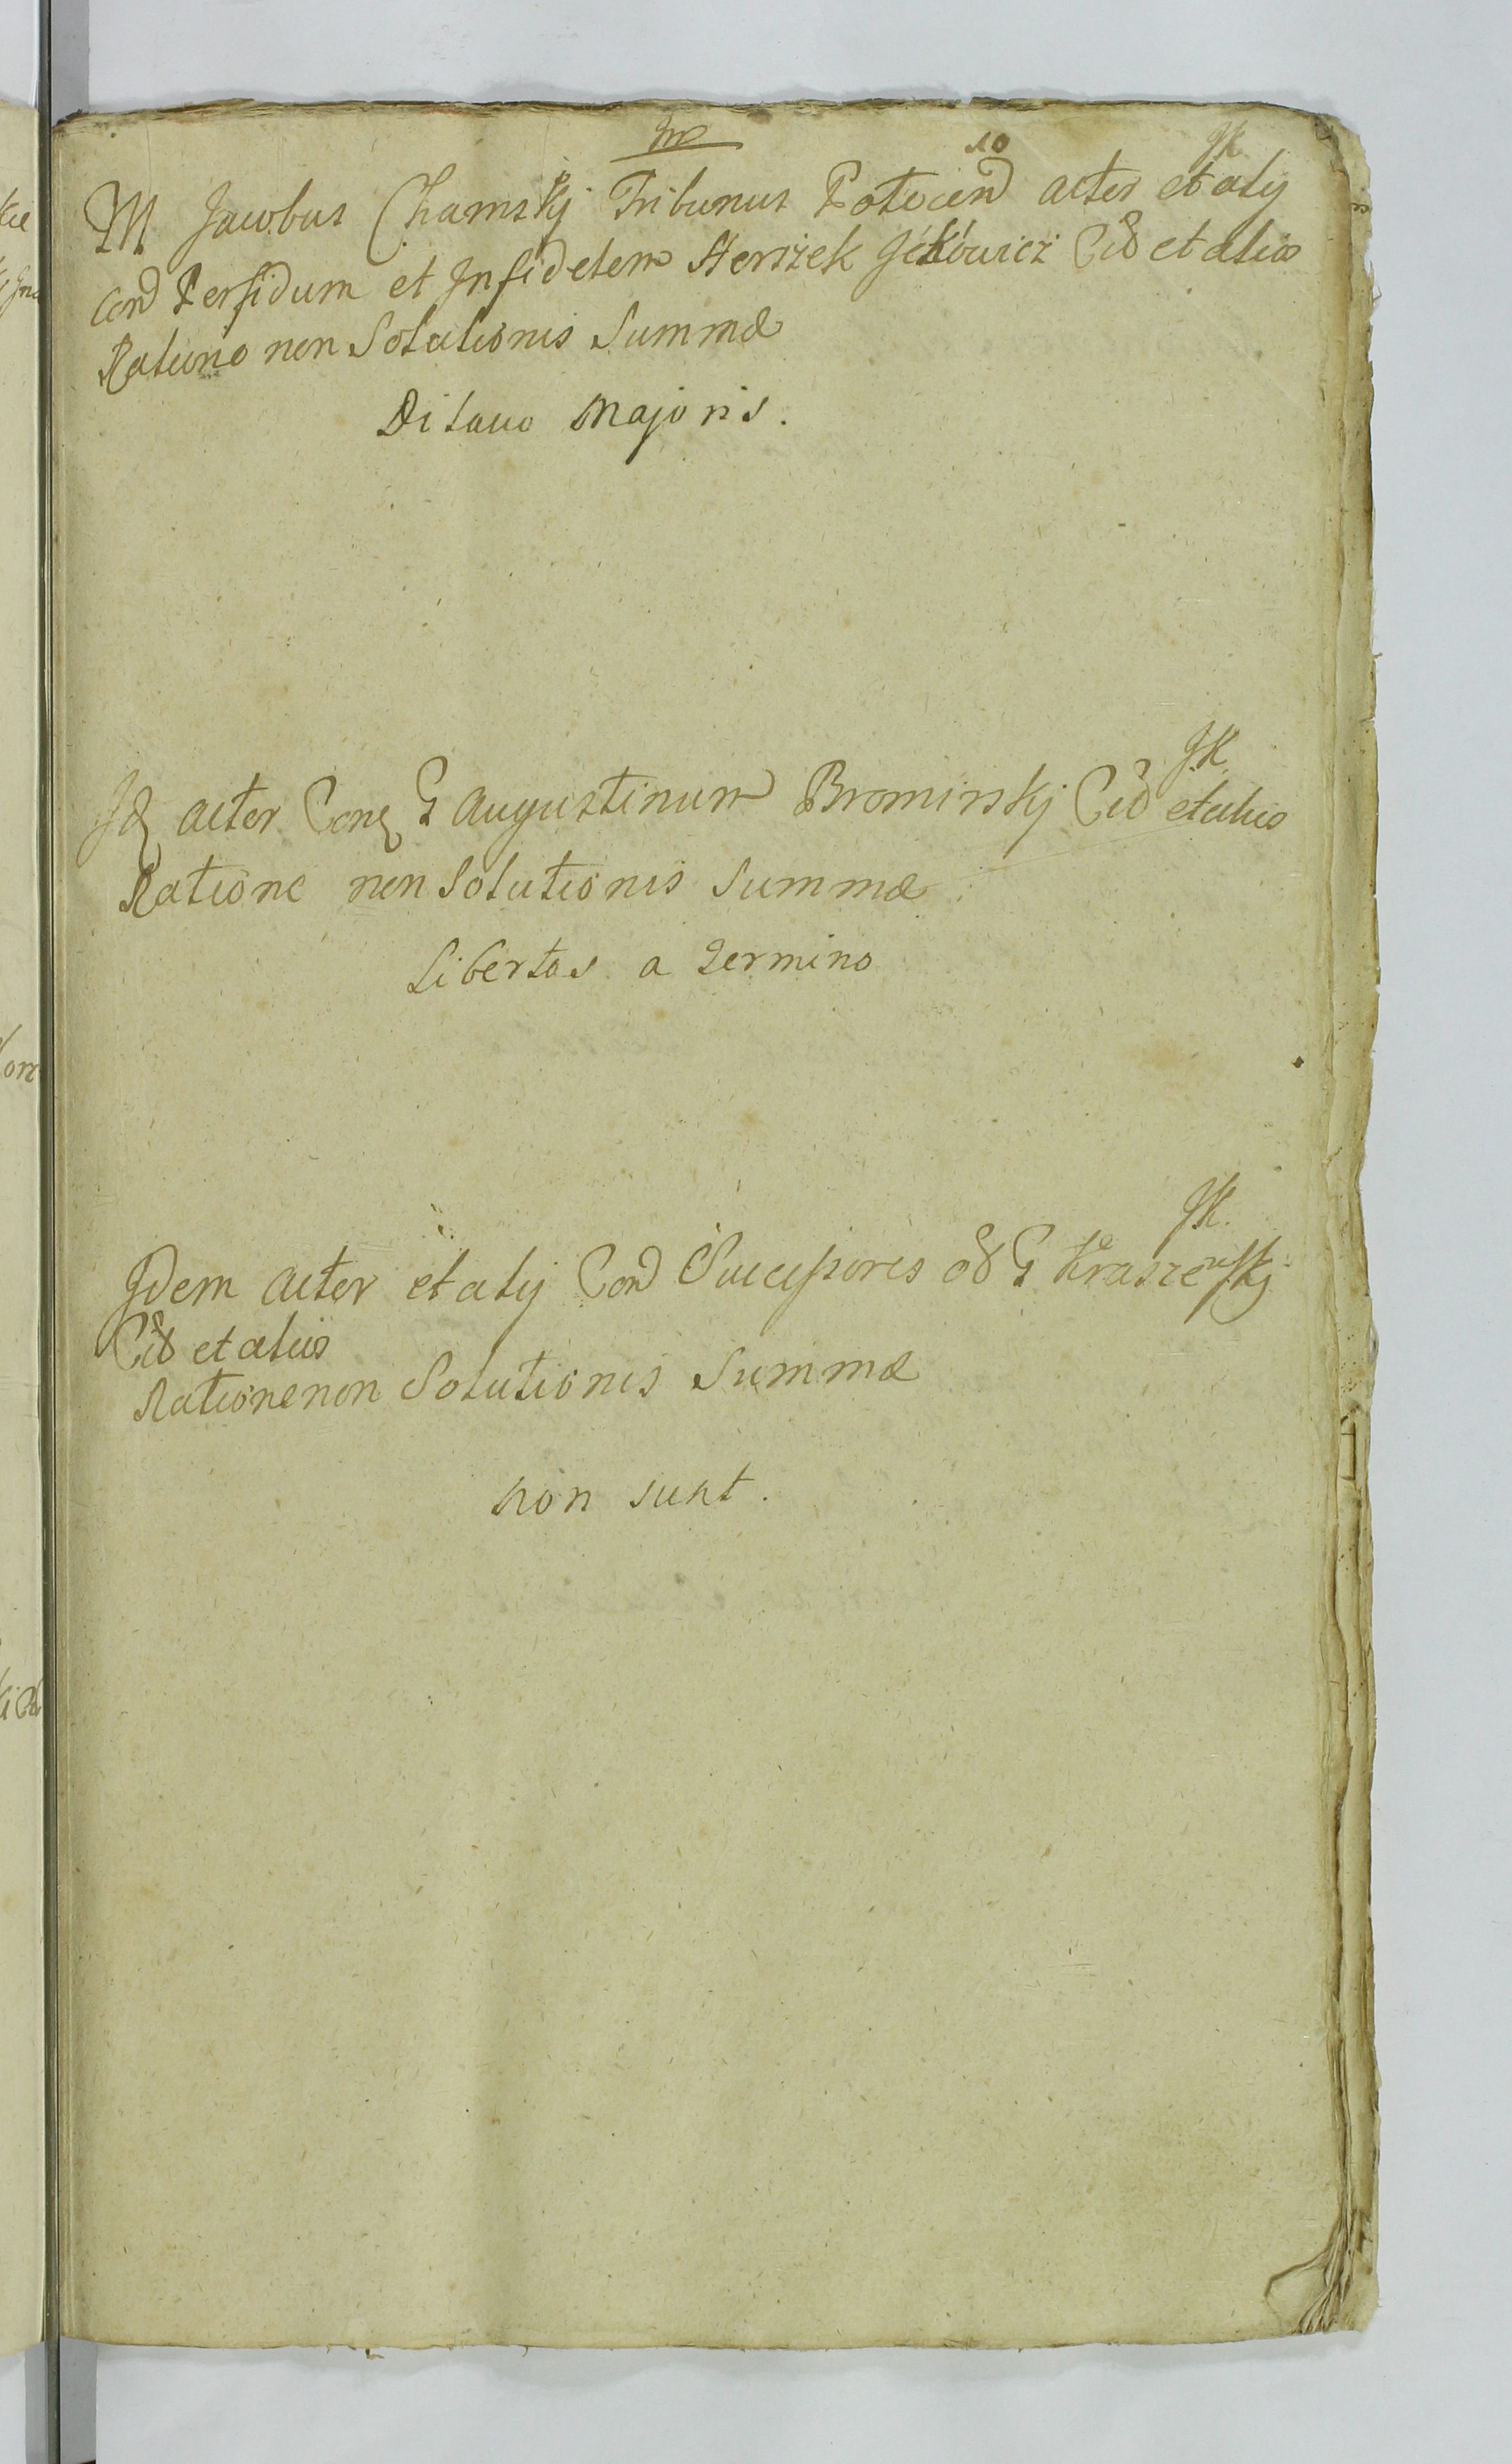 10 JK
M Jacobus Chamskj Tribunus Plocen actor et alij
Con Perfidum et Infidelem Herszek Jckowicz Cit et alios
Ratione non Solutionis Summæ
Dilatio Majoris.
JK
Id actor Con G Augustinum Brominskj Cit et alios
Ratione non Solutionis Summæ
Libertas a Termino
JK.
Idem actor et alij Con Successores od G Kraszewskj
Cit et alios
Ratione non Solutionis Summæ
non sunt.